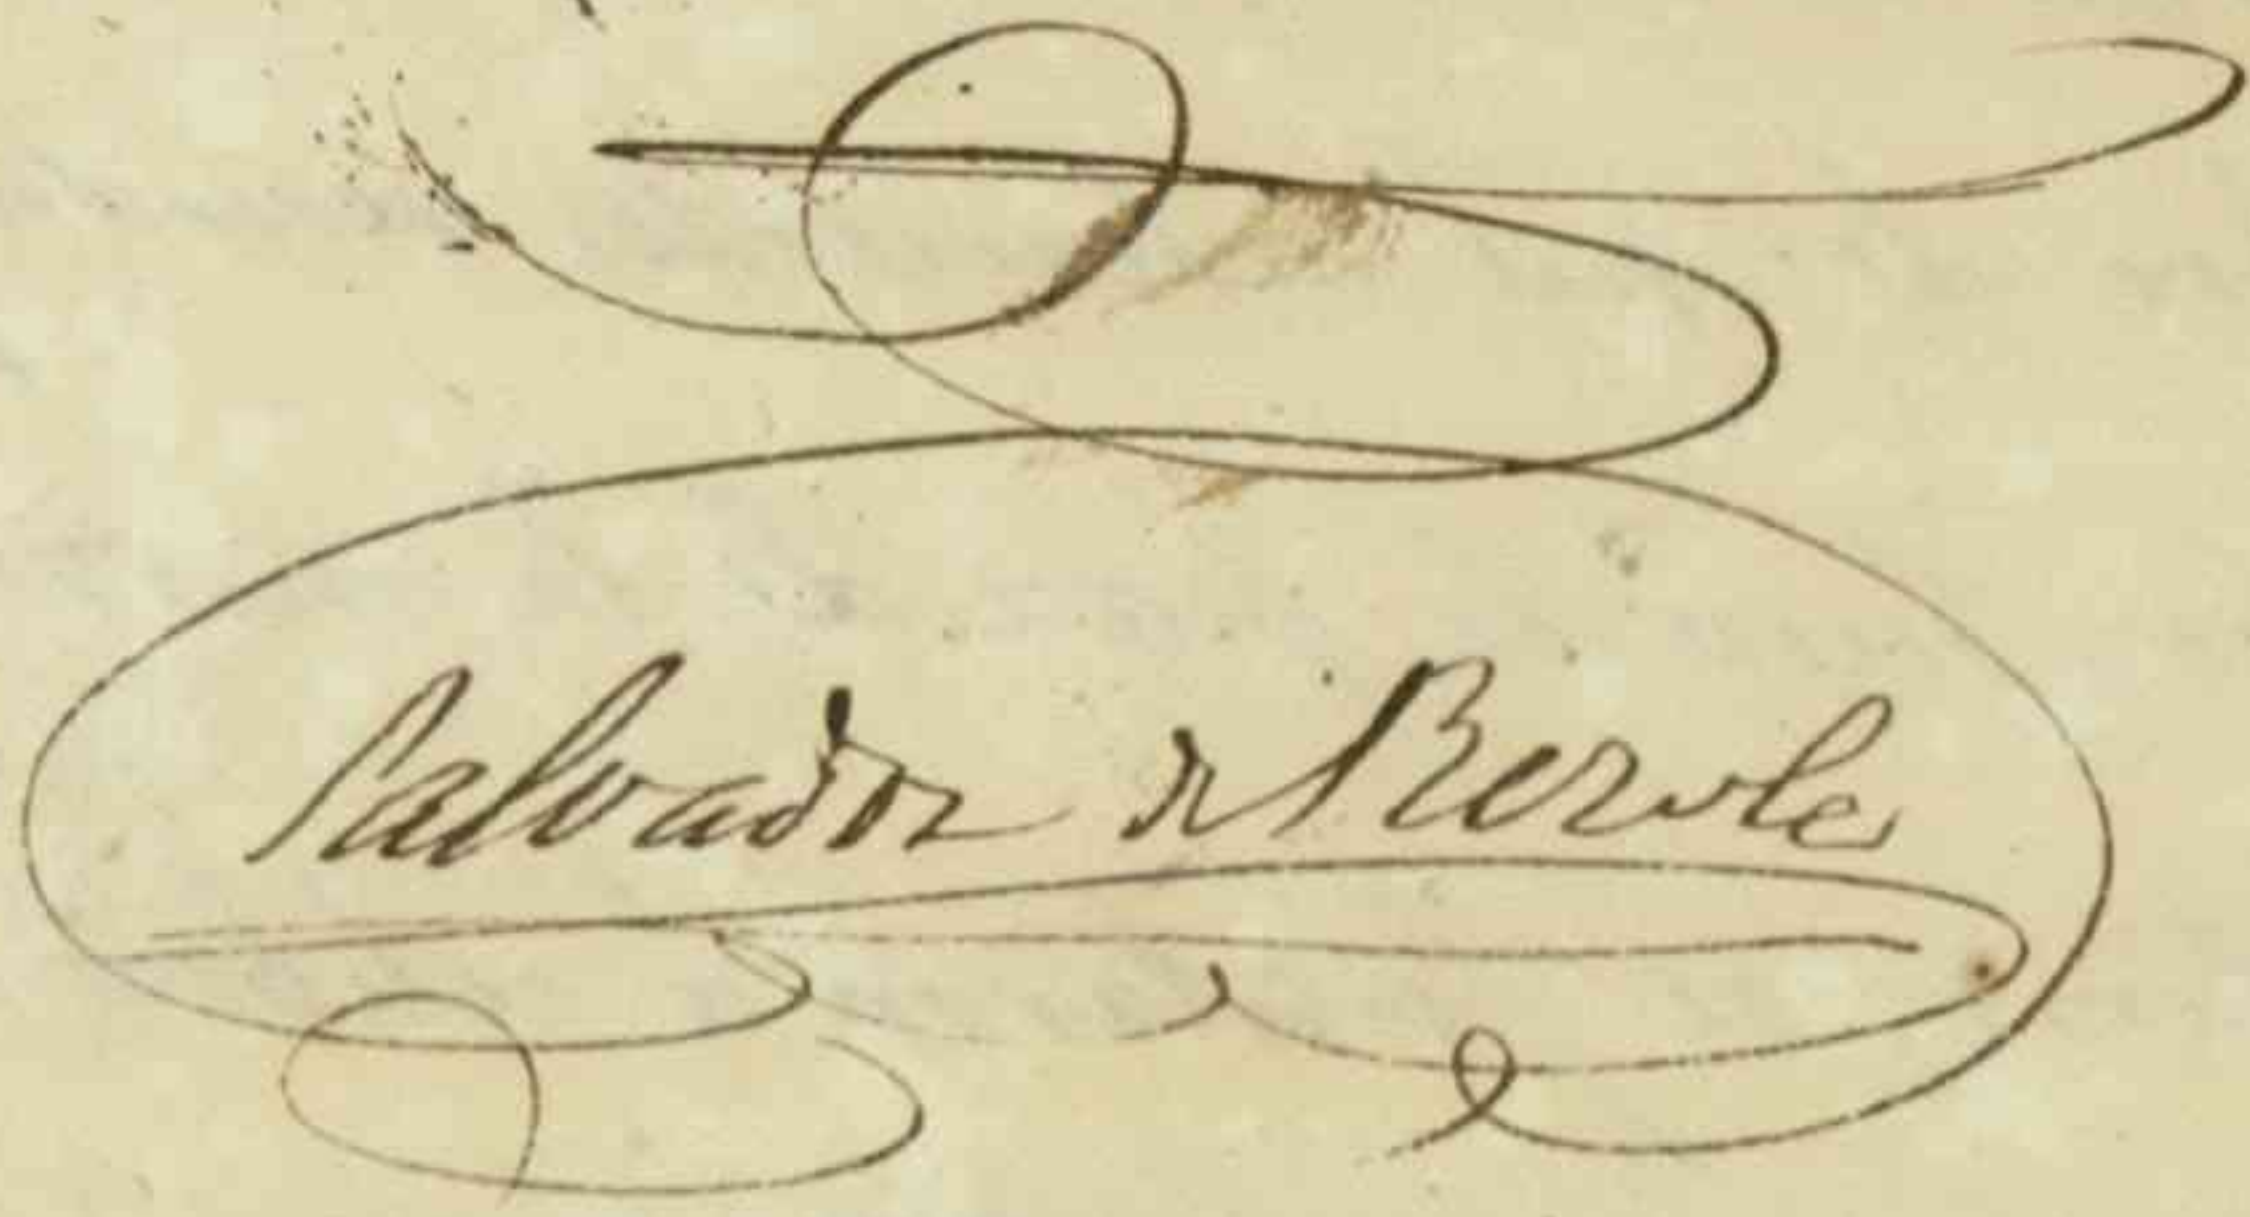 Salvador de Berole